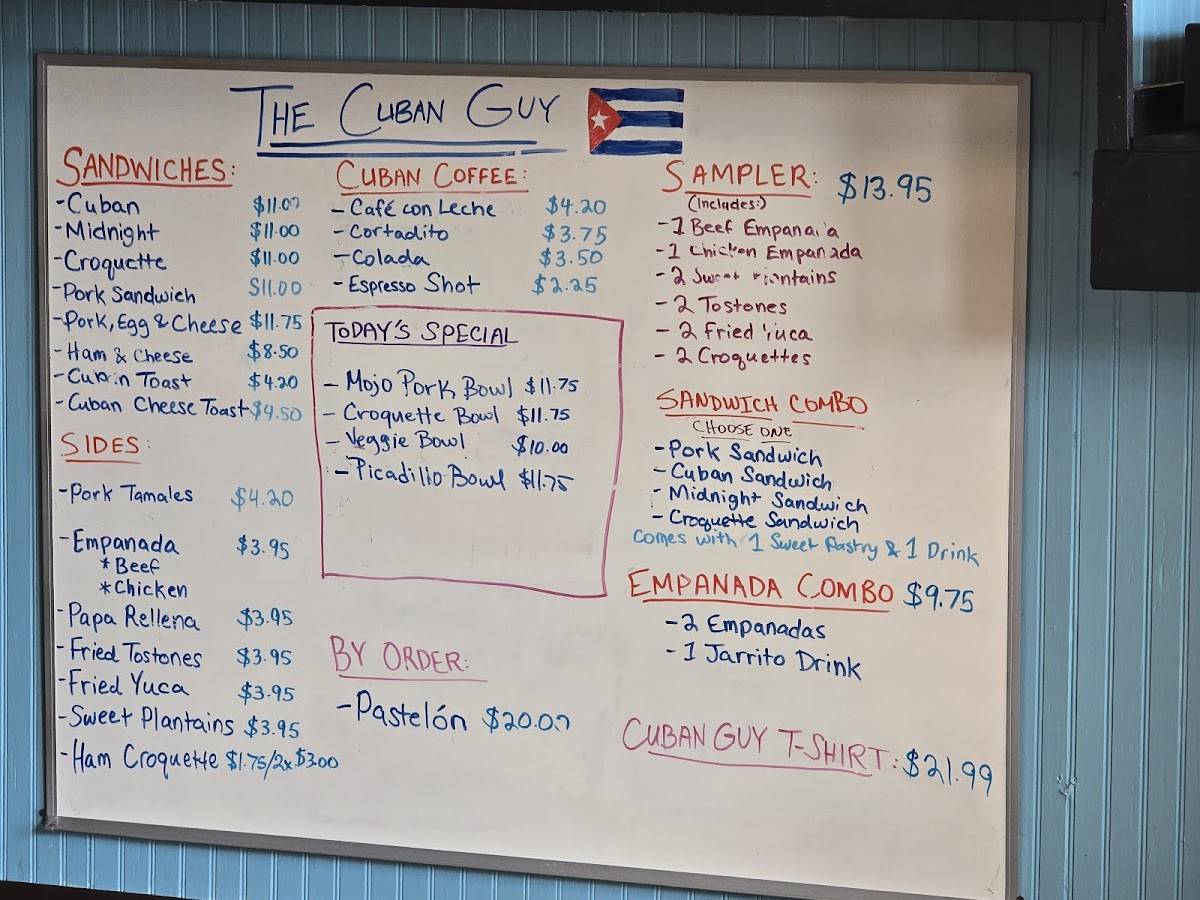 THE CUBAN GUY
SANDWICHES:
-Cuban $11.00
-Midnight $11.00
-Croquette $11.00
-Pork Sandwich $11.00
-Pork, Egg & Cheese $11.75
-Ham & Cheese $8.50
-Cuban Toast $4.20
-Cuban Cheese Toast $4.50
SIDES:
-Pork Tamales $4.20
-Empanada $3.95
*Beef
*Chicken
-Papa Rellena $3.95
-Fried Tostones $3.95
-Fried Yuca $3.95
-Sweet Plantains $3.95
-Ham Croquette $1.75/2x$3.00
CUBAN COFFEE:
-Café con Leche $4.20
-Cortadito $3.75
-Colada $3.50
-Espresso Shot $2.25
TODAY'S SPECIAL
-Mojo Pork Bowl $11.75
-Croquette Bowl $11.75
-Veggie Bowl $10.00
-Picadillo Bowl $11.75
BY ORDER:
-Pastelón $20.00
SAMPLER: $13.95
(Includes:)
-1 Beef Empanada
-1 Chicken Empanada
-2 Sweet Plantains
-2 Tostones
-2 Fried Yuca
-2 Croquettes
SANDWICH COMBO
CHOOSE ONE
-Pork Sandwich
-Cuban Sandwich
-Midnight Sandwich
-Croquette Sandwich
Comes with 1 Sweet Pastry & 1 Drink
EMPANADA COMBO $9.75
-2 Empanadas
-1 Jarrito Drink
CUBAN GUY T-SHIRT: $21.99